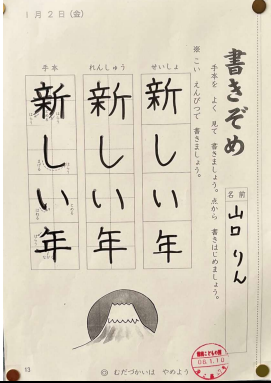 1月2日(金)
書きぞめ
手本を よく 見て 書きましょう。点から 書きはじめましょう。
※ こい えんぴつで 書きましょう。
名前
山口 りん
せいしょ
新しい年
れんしゅう
新しい年
手本
新しい年
13
◎ むだづかいは やめよう